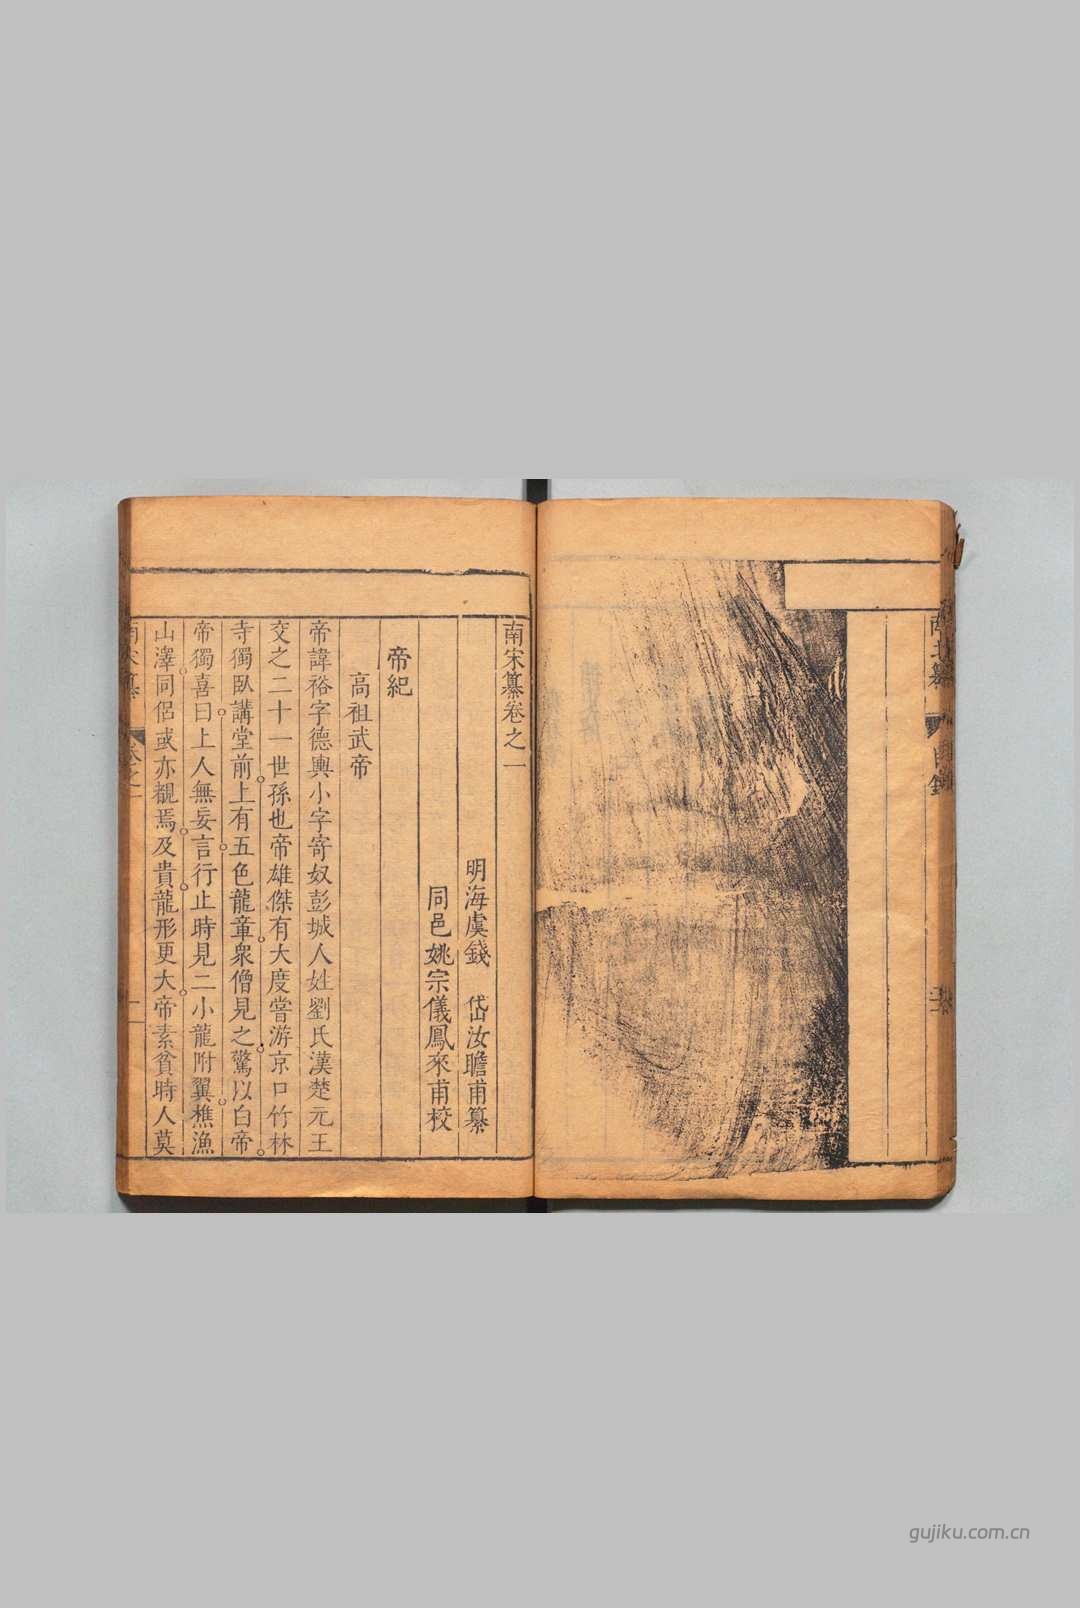 南宋纂卷之一
明海虞錢 岱汝瞻甫纂
同邑姚宗儀鳳來甫校
帝紀
高祖武帝
帝諱裕字德輿小字寄奴彭城人姓劉氏漢楚元王
交之二十一世孫也帝雄傑有大度嘗游京口竹林
寺獨臥講堂前上有五色龍章衆僧見之驚以白帝
帝獨喜曰上人無妄言行止時見二小龍附翼樵漁
山澤同侶或亦覩焉及貴龍形更大帝素貧時人莫
南宋纂 卷之一 一
gujiku.com.cn